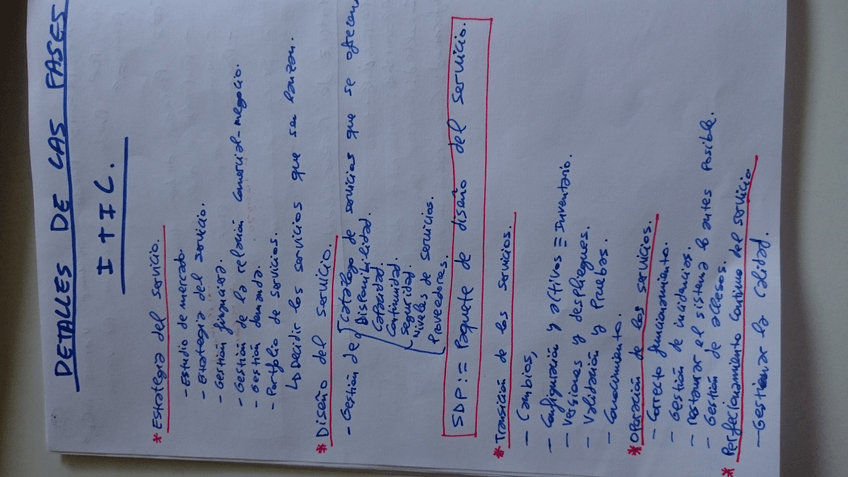 DETALLES DE LAS FASES
ITIL.
* Estrategia del servicio.
- Estudio de mercado
- Estrategia del servicio.
- Gestión financiera.
- Gestión de la relación comercial-negocio.
- Gestión demanda.
- Portfolio de servicios.
↳ Decidir los servicios que se lanzan.
* Diseño del servicio.
- Gestión de: Catálogo de servicios que se ofrecen
Disponibilidad.
Capacidad.
Continuidad.
Seguridad.
Niveles de servicios.
Proveedores.
SDP := Paquete de diseño del servicio.
* Transición de los servicios.
- Cambios,
- Configuración y activos ≡ Inventario.
- Versiones y despliegues.
- Validación y Pruebas.
- Conocimiento.
* Operación de los servicios.
- Correcto funcionamiento.
- Gestión de incidencias
- restaurar el sistema lo antes posible.
- Gestión de accesos.
* Perfeccionamiento continuo del servicio
- Gestionar la calidad.